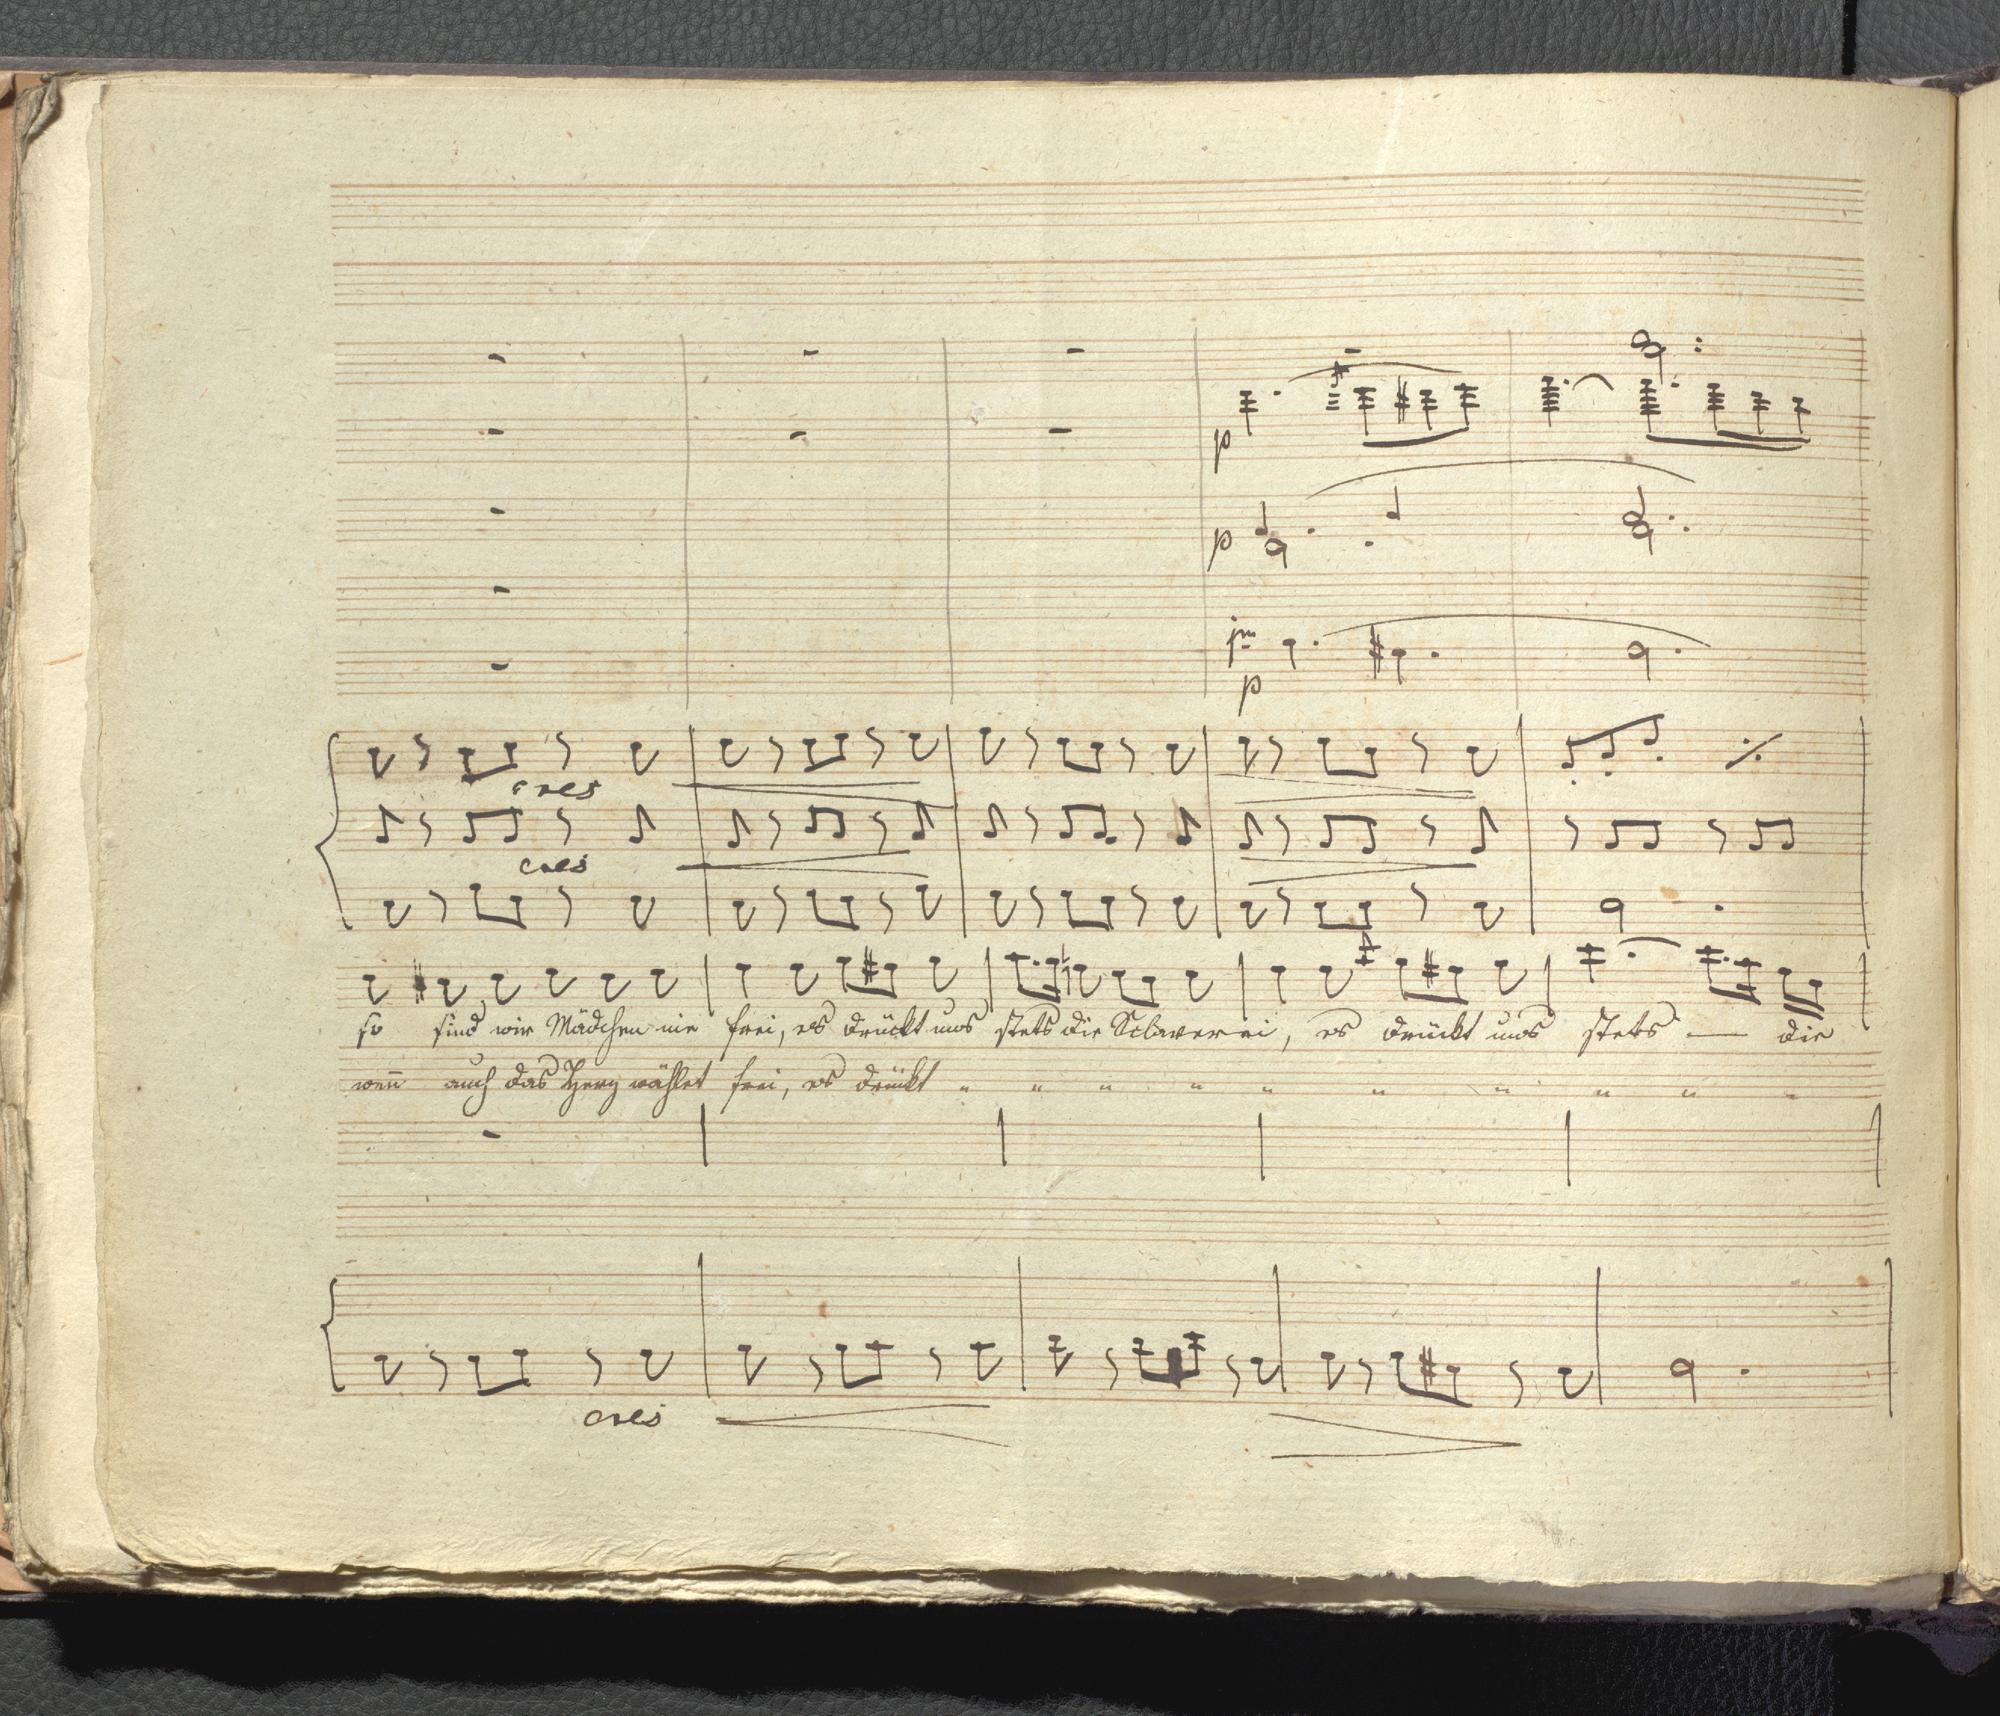 p
p
im̅
p
cres
cres
so sind wir Mädchen nie frei, es drückt uns stets die Sclaverei, es drückt uns stets — die
wen̅ auch das Herz wählet frei, es drückt " " " " " " " " " "
cres